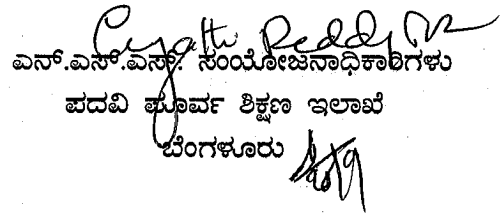 ಎನ್.ಎಸ್.ಎಸ್. ಸಂಯೋಜನಾಧಿಕಾರಿಗಳು
ಪದವಿ ಪೂರ್ವ ಶಿಕ್ಷಣ ಇಲಾಖೆ
ಬೆಂಗಳೂರು